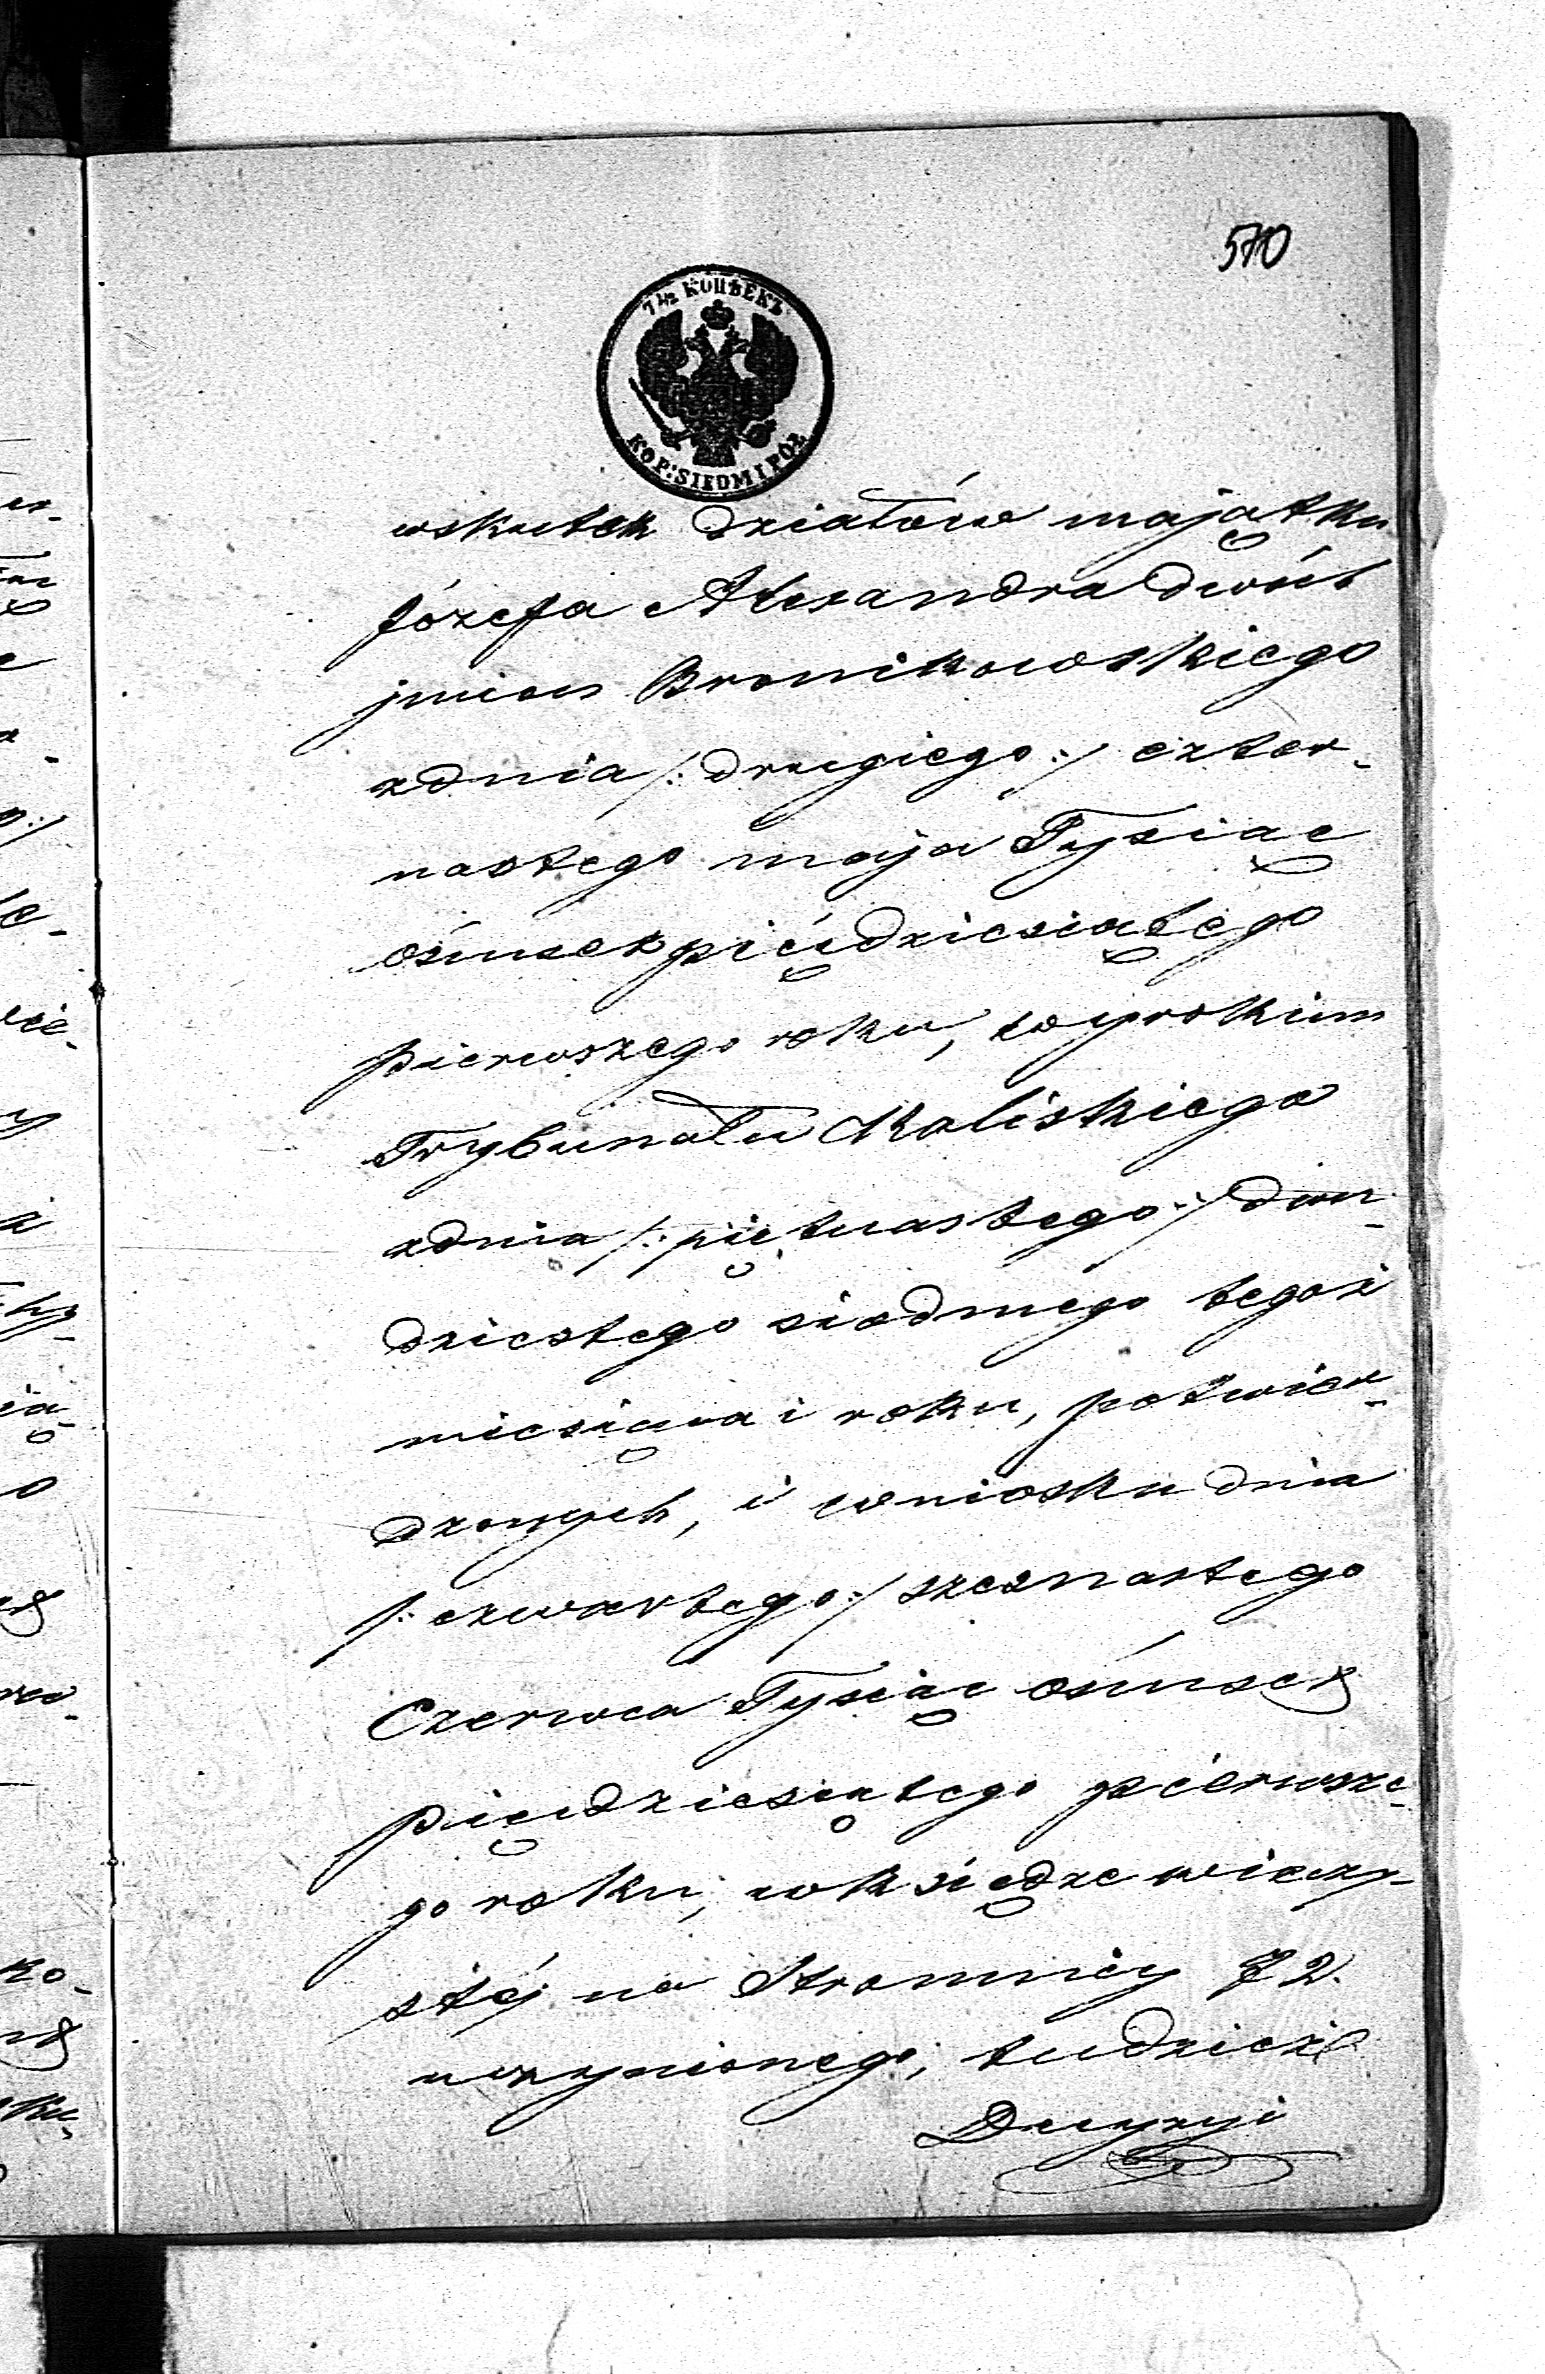 570
7½ КОПѢЕКЪ
KOP: SIEDM I PÓŁ
wskutek działów majątku
Józefa Alexandra dwóch
jmion Bronikowskiego
zdnia /: drugiego :/ czter-
nastego maja Tysiąc
ośmset pięćdziesiątego
pierwszego roku, wyrokiem
Trybunału Kaliskiego
zdnia /: piętnastego :/ dwu-
dziestego siódmego tegoż
miesiąca i roku, potwier-
dzonych, i wniosku dnia
/: czwartego :/ szesnastego
Czerwca Tysiąc ośmset
pięćdziesiątego pierwsze-
go roku, wksiędze wieczy-
stéj na Stronnicy 72.
uczynionego; tudzież
Decyzyi